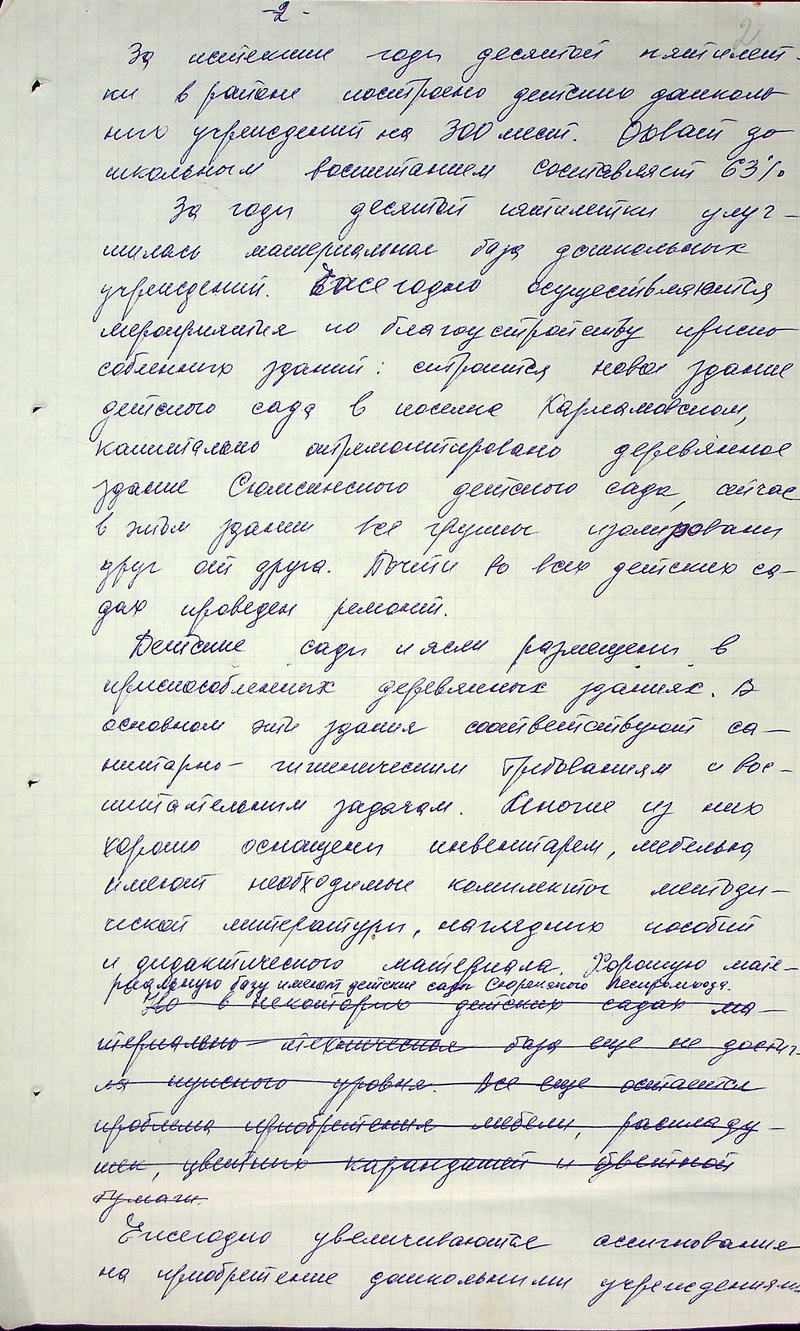 -2-
2
За истекшие годы десятой пятилет-
ки в районе построено детских дошколь
ных учреждений на 300 мест. Охват до
школьным воспитанием составляет 63%
За годы десятой пятилетки улуч-
шилась материальная база дошкольных
учреждений. Ежегодно осуществляются
мероприятия по благоустройству приспо
собленных зданий: строится новое здание
детского сада в поселке Кармановском,
капитально отремонтировано деревянное
здание Сюмсинского детского сада, сейчас
в этом здании все группы изолированы
друг от друга. Почти во всех детских са-
дах проведен ремонт.
Детские сады и ясли размещены в
приспособленных деревянных зданиях. В
основном эти здания соответствуют са-
нитарно-гигиеническим требованиям и вос-
питательным задачам. Многие из них
хорошо оснащены инвентарем, мебелью
имеют необходимые комплекты методи-
ческой литературы, наглядных пособий
и дидактического материала. Хорошую мате-
риальную базу имеют детские сады Сюрекского леспромхоза.
Но в некоторых детских садах ма-
териально-техническая база еще не достиг-
ла нужного уровня. Все еще остается
проблема приобретения мебели, раскладу-
шек, цветных карандашей и цветной
бумаги.
Ежегодно увеличиваются ассигнования
на приобретение дошкольными учреждениями